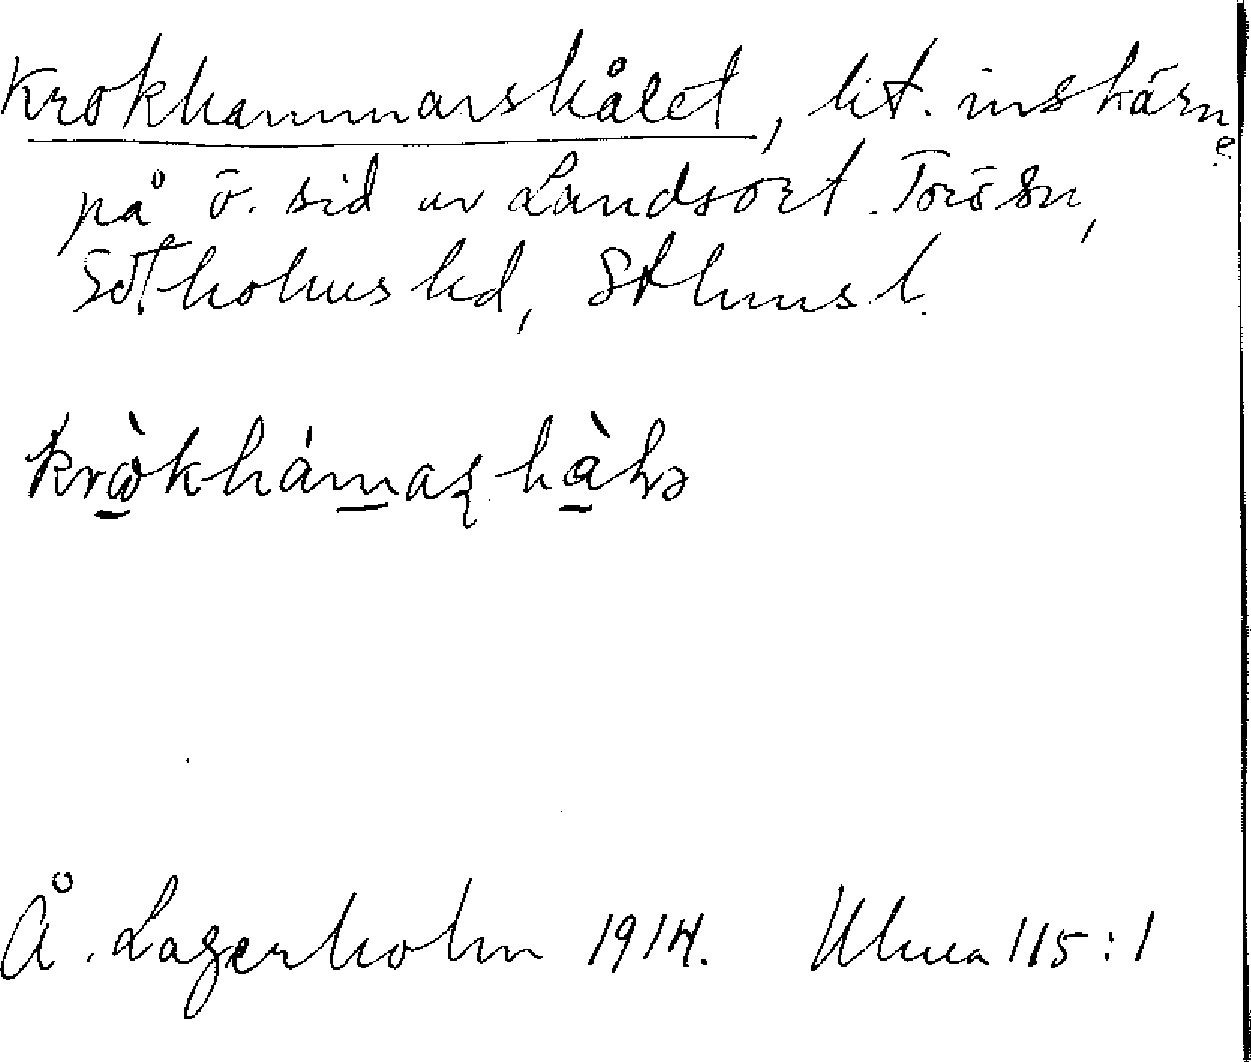 Krokhammarshålet, lit. inskärn.
på ö. sid av Landsort. Torö sn,
Sotholms hd, Sthms l.
kròkhámaʂhàlə
Å. Lagerholm 1914. Ulma 115:1